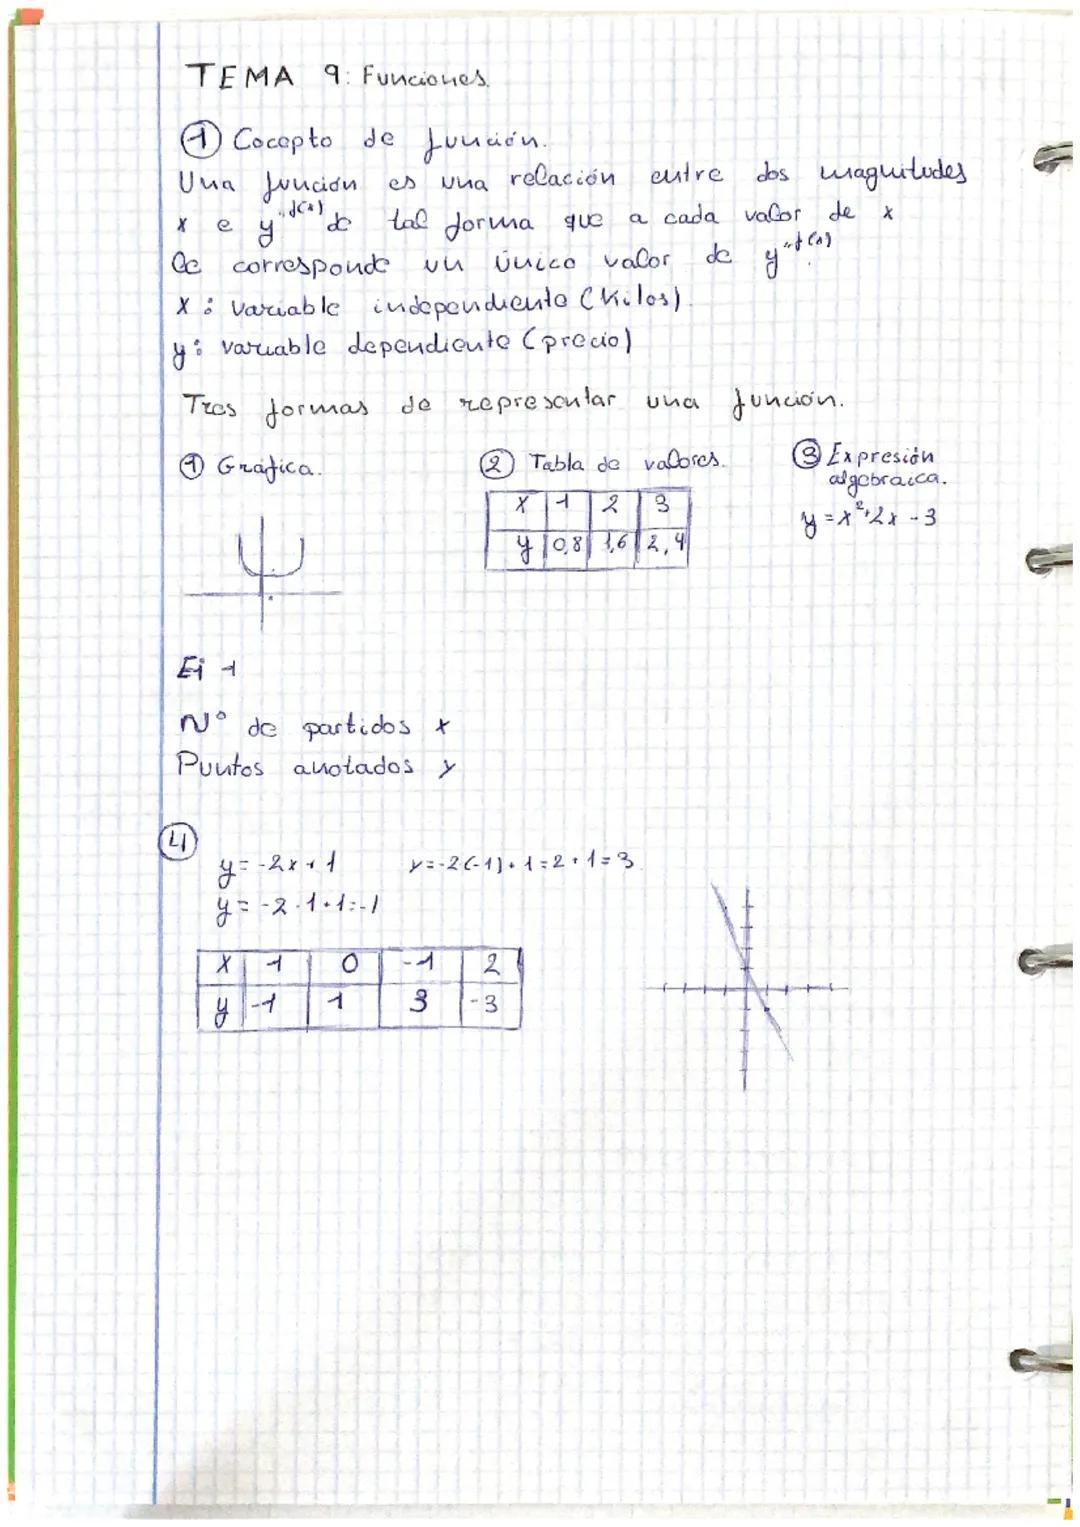 TEMA 9: Funciones.
① Cocepto de función.
Una función es una relación entre dos magnitudes
x e y "f(x) de tal forma que a cada valor de x
le corresponde un único valor de y "f(x).
X: variable independiente (Kilos).
y: variable dependiente (precio)
Tres formas de representar una función.
① Gráfica. ② Tabla de valores. ③ Expresión
algebraica.
X 1 2 3
y 0,8 1,6 2,4
y = x²+2x - 3
Ej 1
Nº de partidos x
Puntos anotados y
④
y = -2x + 1 y = -2(-1) + 1 = 2 + 1 = 3
y = -2·1+1=-1
X 1 0 -1 2
y -1 1 3 -3